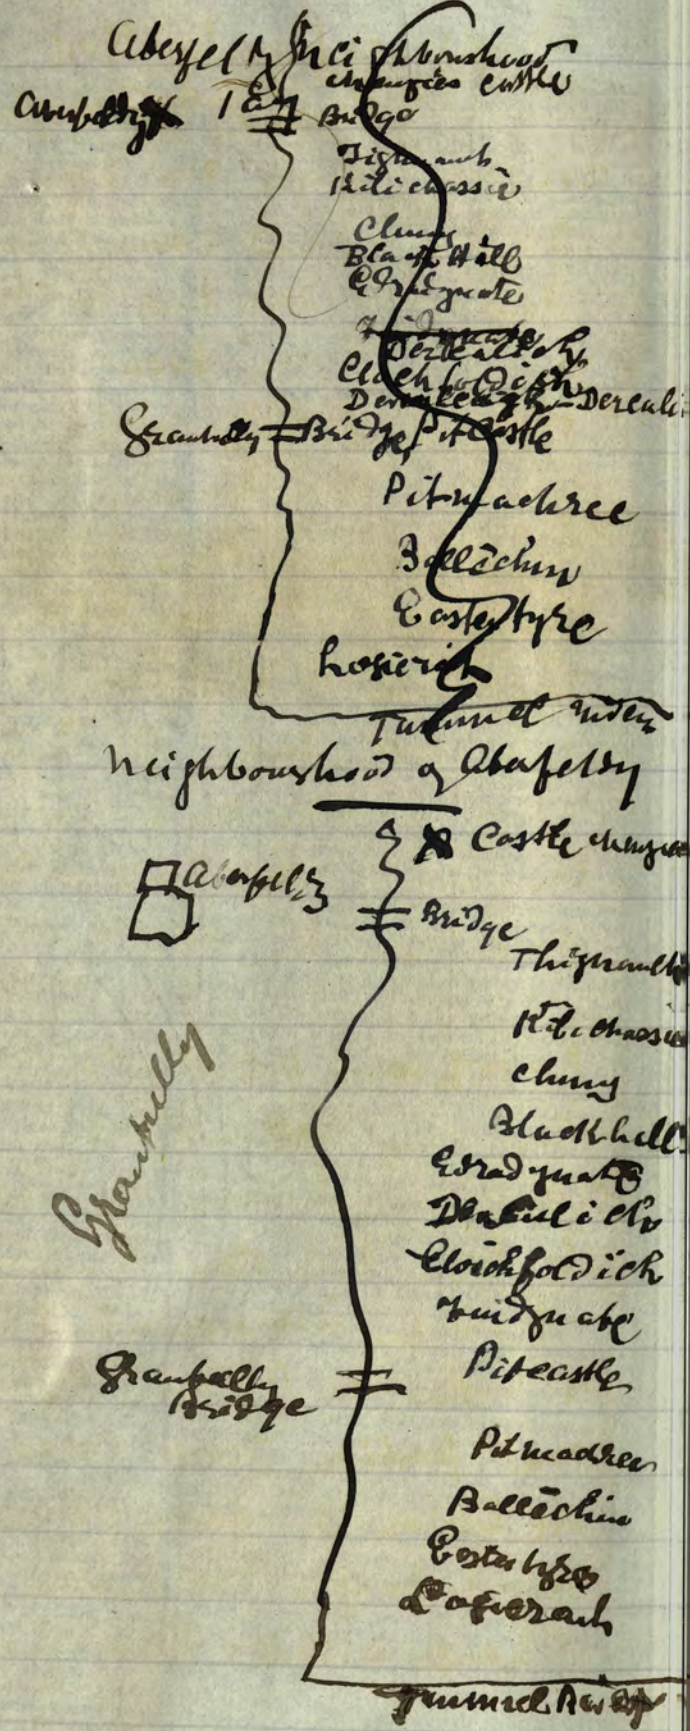 Aberfeldy Neighbourhood
Menzies Castle
Aberfeldy
Bridge
Tighnauch
Kilichassie
Cluny
Black Hill
Edradynate
Derculich
Clochfoldich
Derculi
Grantully Bridge Pitcastle
Pitnachree
Ballechin
Easter tyre
Logierait
Tummel River
Neighbourhood of Aberfeldy
Castle Menzies
Aberfeldy
Bridge
Kilichassie
Cluny
Blackhall
Grantully
Edradynate
Derculich
Cloichfoldich
Findynate
Grantully
Bridge
Pitcastle
Pitnachree
Ballechin
Easter tyre
Logierait
Tummel River